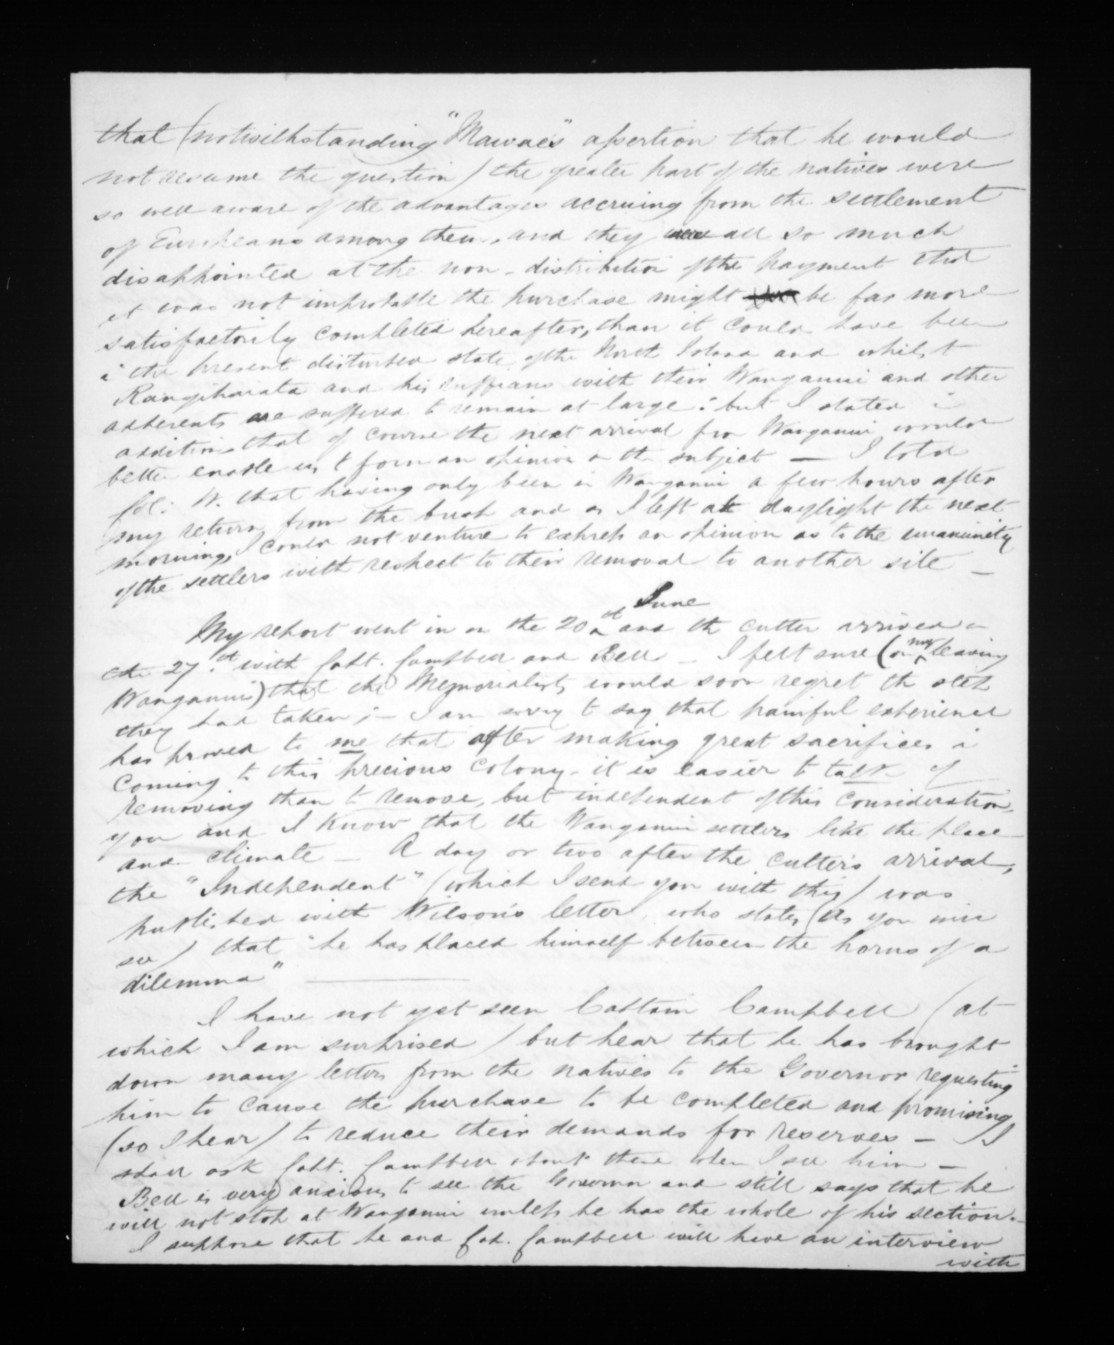 that (notwithstanding "Mawae's" assertion that he would
not resume the question) the greater part of the natives were
so well aware of the advantages accruing from the settlement
of Europeans among them, and they were all so much
disappointed at the non-distribution of the payment that
it was not improbable the purchase might be far more
satisfactorily completed hereafter, than it could have been
i the present disturbed state of the North Island and whilst
Rangihaiata and his ruffians with their Wanganui and other
adherents are suffered to remain at large: but I stated i
addition that of course the next arrival from Wanganui would
better enable us to form an opinion on the subject — I told
Col: W. that having only been in Wanganui a few hours after
my return from the bush and as I left at daylight the next
morning, I could not venture to express an opinion as to the unanimity
of the settlers with respect to their removal to another site —
My report went in on the 20th June and the cutter arrived on
the 27th with Capt. Campbell and Bell — I felt sure (on my leaving
Wanganui) that the Memorialists would soon regret the step
they had taken; — I am sorry to say that painful experience
has proved to me that after making great sacrifices i
coming to this precious colony - it is easier to talk of
removing than to remove, but independent of this consideration,
you and I know that the Wanganui settlers like the place
and climate — A day or two after the cutter's arrival,
the "Independent" (which I send you with this) was
published with Wilson's letter, who states (as you will
see) that "he has placed himself between the horns of a
dilemma" —
I have not yet seen Captain Campbell (at
which I am surprised) but hear that he has brought
down many letters from the natives to the Governor requesting
him to cause the purchase to be completed and promising
(so I hear) to reduce their demands for reserves — I
shall ask Capt. Campbell about these when I see him —
Bell is very anxious to see the Governor and still says that he
will not stop at Wanganui unless he has the whole of his section. —
I suppose that he and Capt. Campbell will have an interview
with